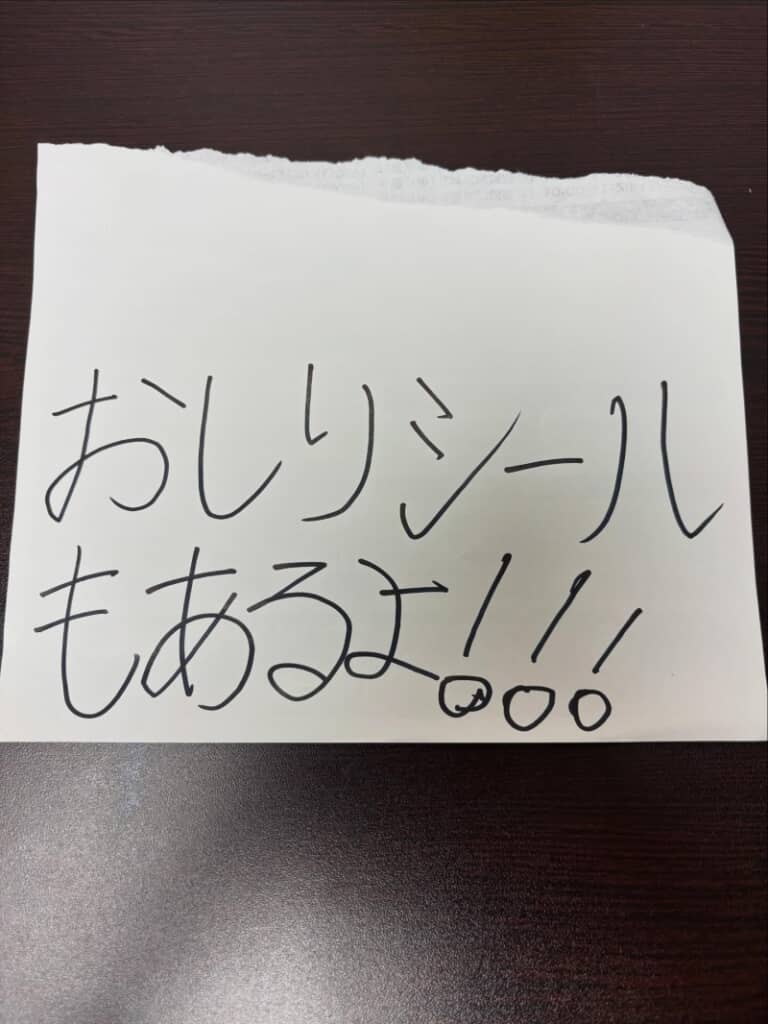 おしりシール
もあるよ!!!